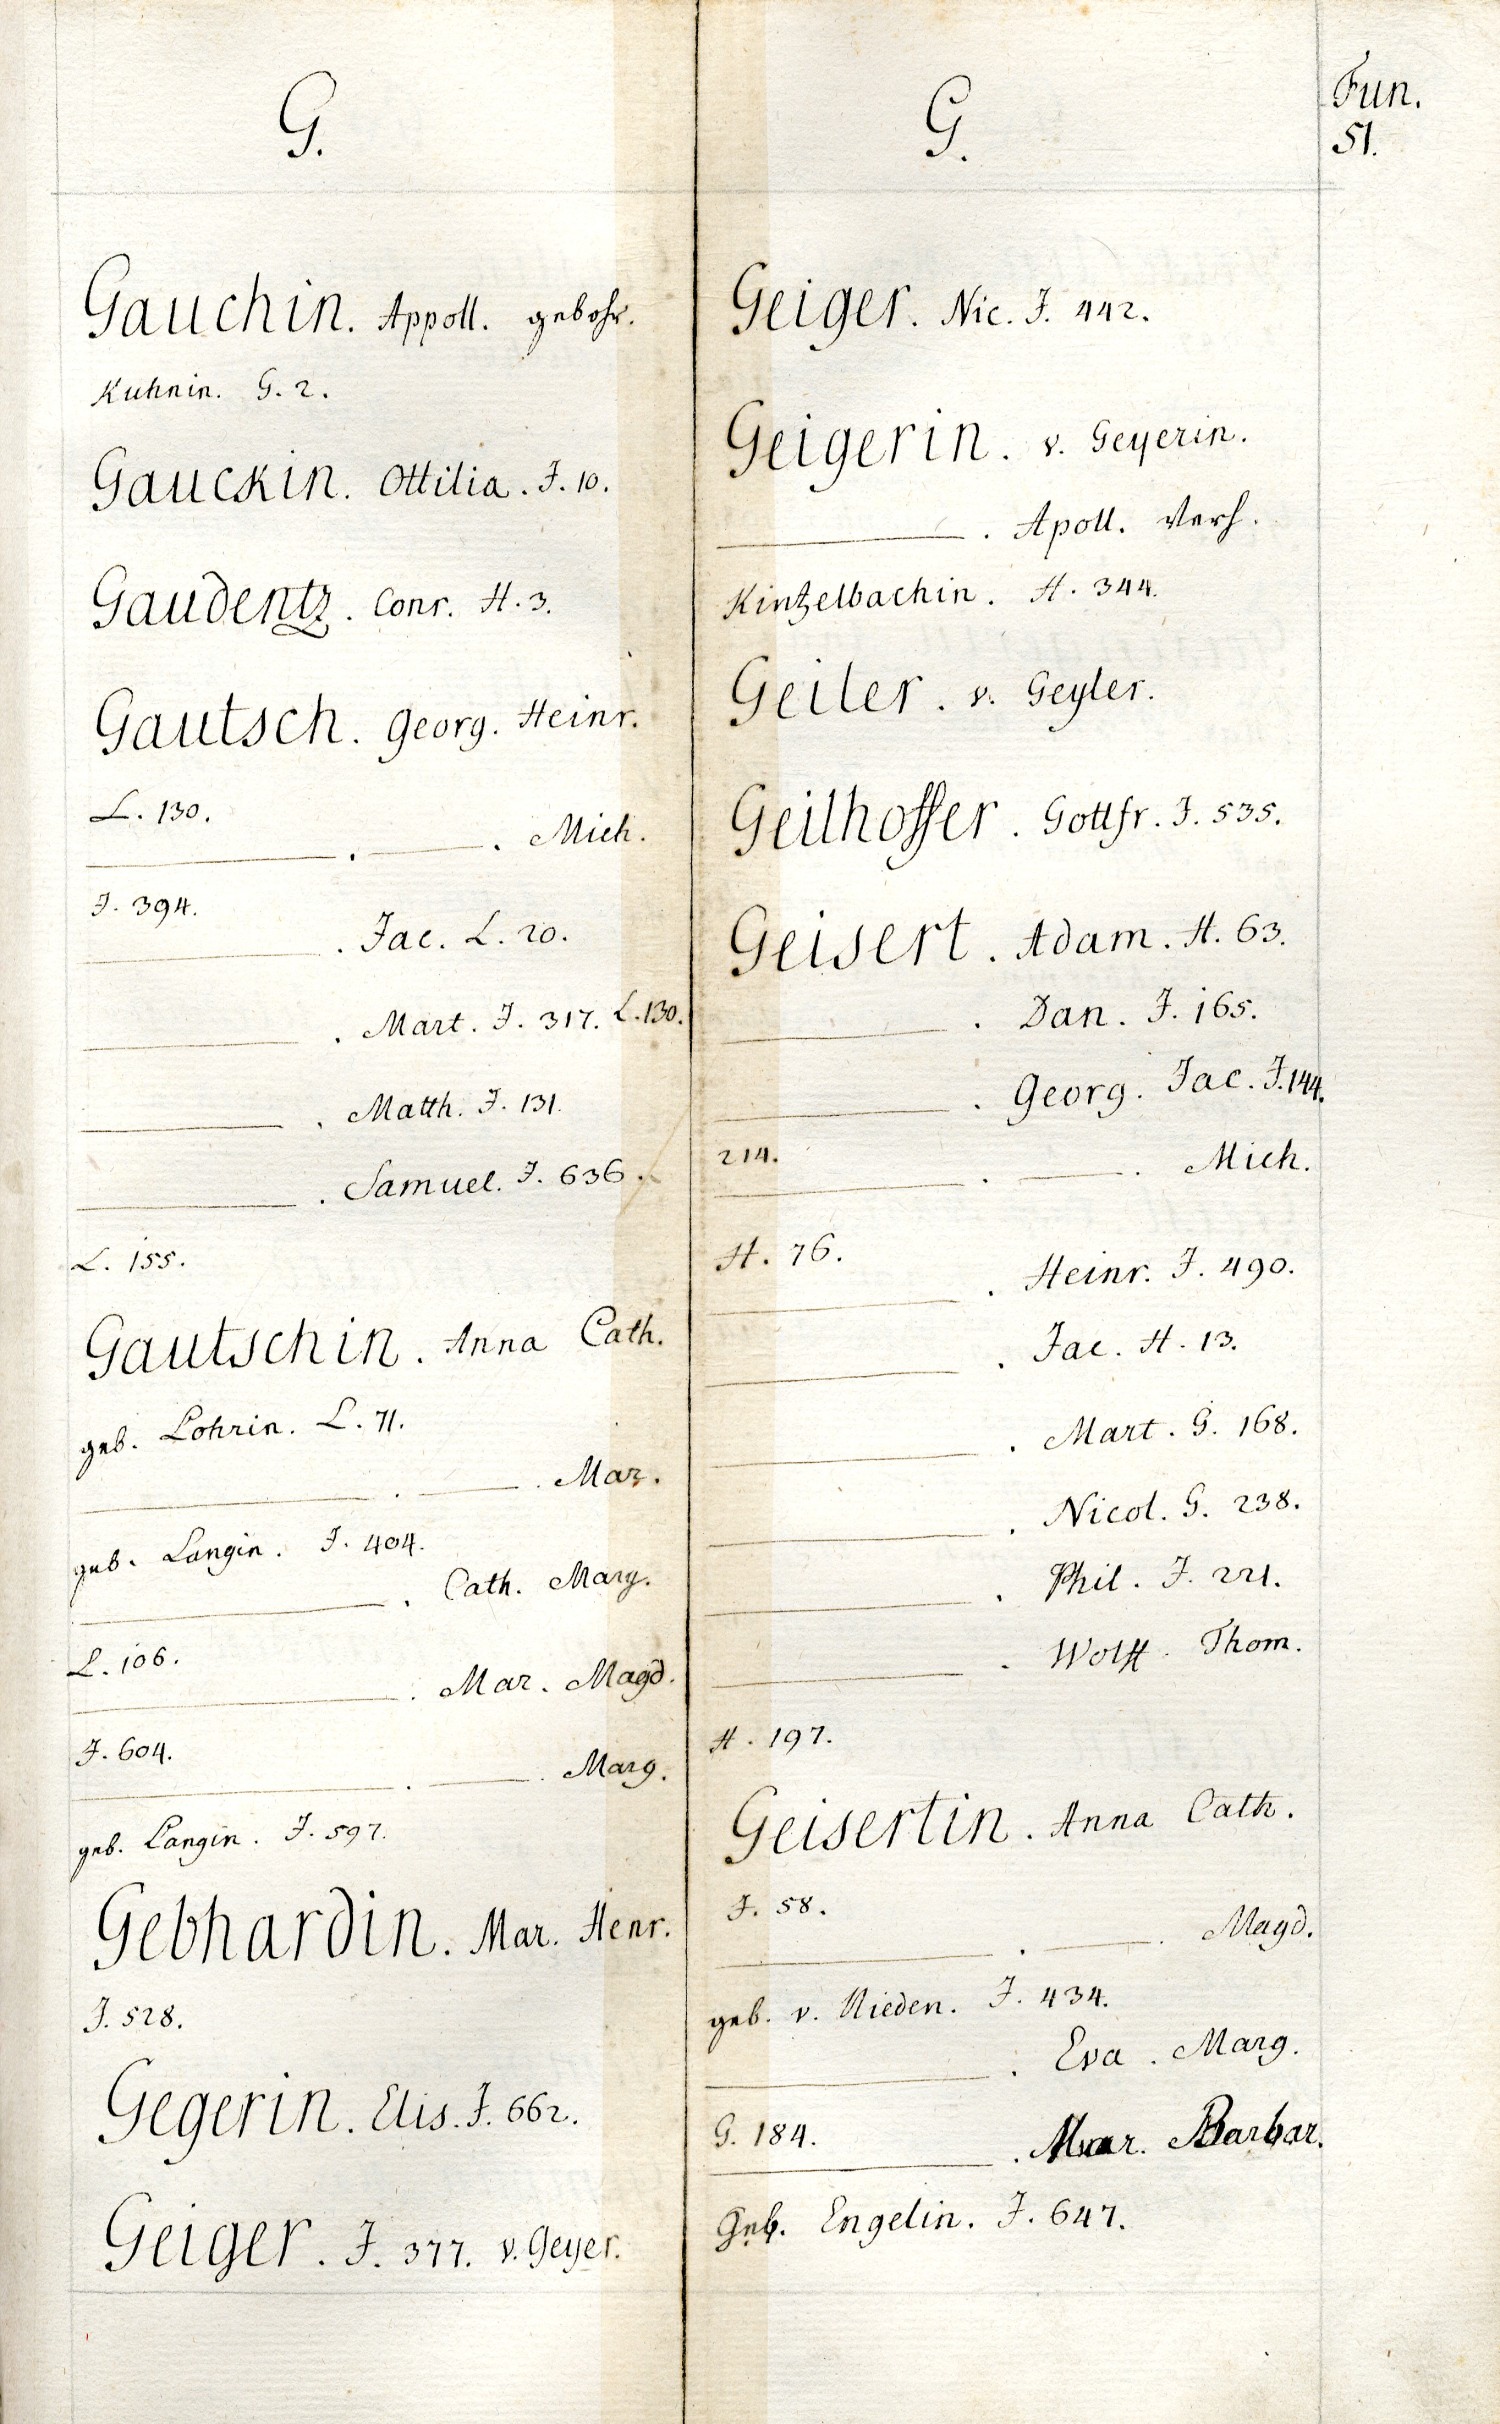 Fun.
51.
G.
Gauchin. Appoll. gebohr.
Kuhnin. G. 2.
Gauckin. Ottilia. J. 10.
Gaudentz. Conr. H. 3.
Gautsch. Georg. Heinr.
L. 130.
. . Mich.
J. 394.
. Jac. L. 20.
. Mart. J. 317. L. 130.
. Matth. J. 131.
. Samuel. J. 636.
L. 155.
Gautschin. Anna Cath.
geb. Lohrin. L. 71.
. . Mar.
geb. Langin. J. 404.
. Cath. Marg.
L. 106.
. Mar. Magd.
J. 604.
. . Marg.
geb. Langin. J. 597.
Gebhardin. Mar. Henr.
J. 528.
Gegerin. Elis. J. 662.
Geiger. J. 377. v. Geyer.
G.
Geiger. Nic. J. 442.
Geigerin. v. Geyerin.
. Apoll. Verh.
Kintzelbachin. H. 344.
Geiler. v. Geyler.
Geilhoffer. Gottfr. J. 535.
Geisert. Adam. H. 63.
. Dan. J. 165.
. Georg. Jac. J. 144.
214.
. . Mich.
H. 76.
. Heinr. J. 490.
. Jac. H. 13.
. Mart. G. 168.
. Nicol. G. 238.
. Phil. J. 221.
. Wolff. Thom.
H. 197.
Geisertin. Anna Cath.
J. 58.
. . Magd.
geb. v. Nieden. J. 434.
. Eva. Marg.
G. 184.
. Mar. Barbar.
Geb. Engelin. J. 647.